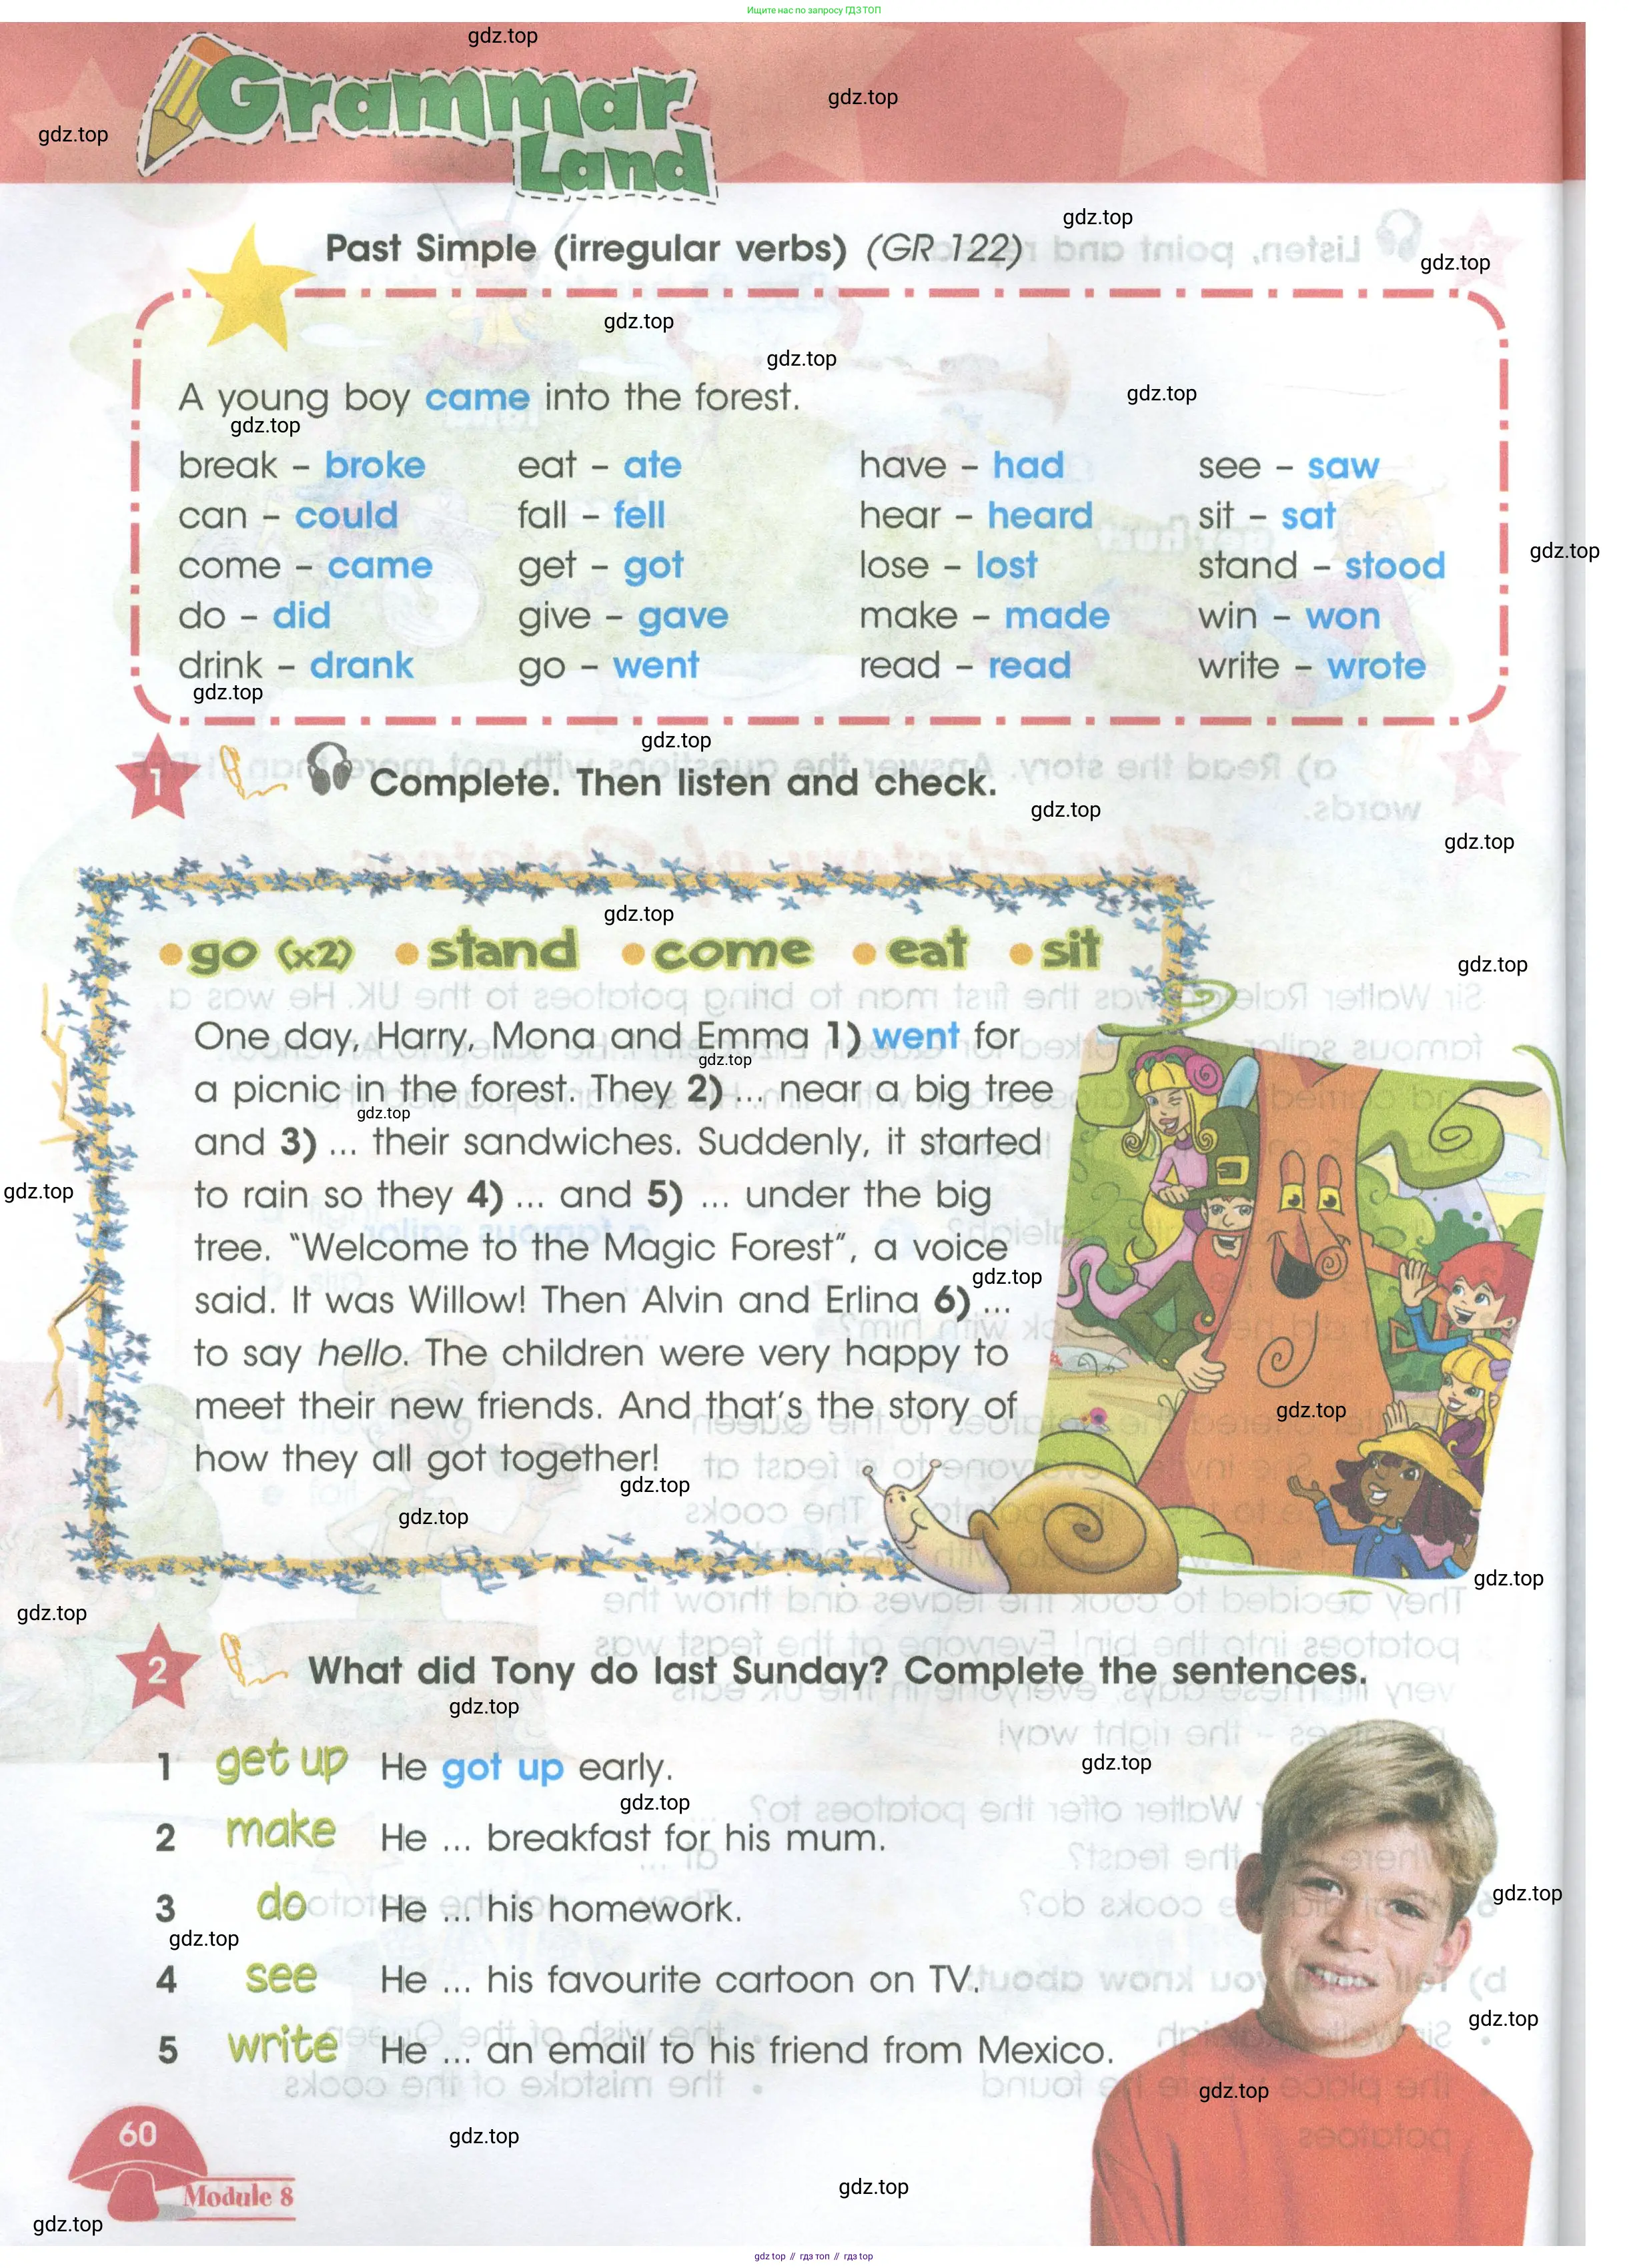 Ищите нас по запросу ГДЗ ТОП
Grammar
Land
Past Simple (irregular verbs) (GR 122)
A young boy came into the forest.
break – broke eat – ate have – had see – saw
can – could fall – fell hear – heard sit – sat
come – came get – got lose – lost stand – stood
do – did give – gave make – made win – won
drink – drank go – went read – read write – wrote
1 Complete. Then listen and check.
• go (x2) • stand • come • eat • sit
One day, Harry, Mona and Emma 1) went for
a picnic in the forest. They 2) ... near a big tree
and 3) ... their sandwiches. Suddenly, it started
to rain so they 4) ... and 5) ... under the big
tree. “Welcome to the Magic Forest”, a voice
said. It was Willow! Then Alvin and Erlina 6) ...
to say hello. The children were very happy to
meet their new friends. And that’s the story of
how they all got together!
2 What did Tony do last Sunday? Complete the sentences.
1 get up He got up early.
2 make He ... breakfast for his mum.
3 do He ... his homework.
4 see He ... his favourite cartoon on TV.
5 write He ... an email to his friend from Mexico.
60
Module 8
gdz.top
gdz top // гдз топ // гдз top